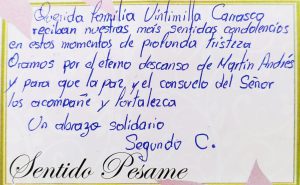 Querida familia Vintimilla Carrasco
reciban nuestras más sentidas condolencias
en estos momentos de profunda tristeza
Oramos por el eterno descanso de Martín Andrés
y para que la paz y el consuelo del Señor
los acompañe y fortalezca
Un abrazo solidario
Segundo C.
Sentido Pésame